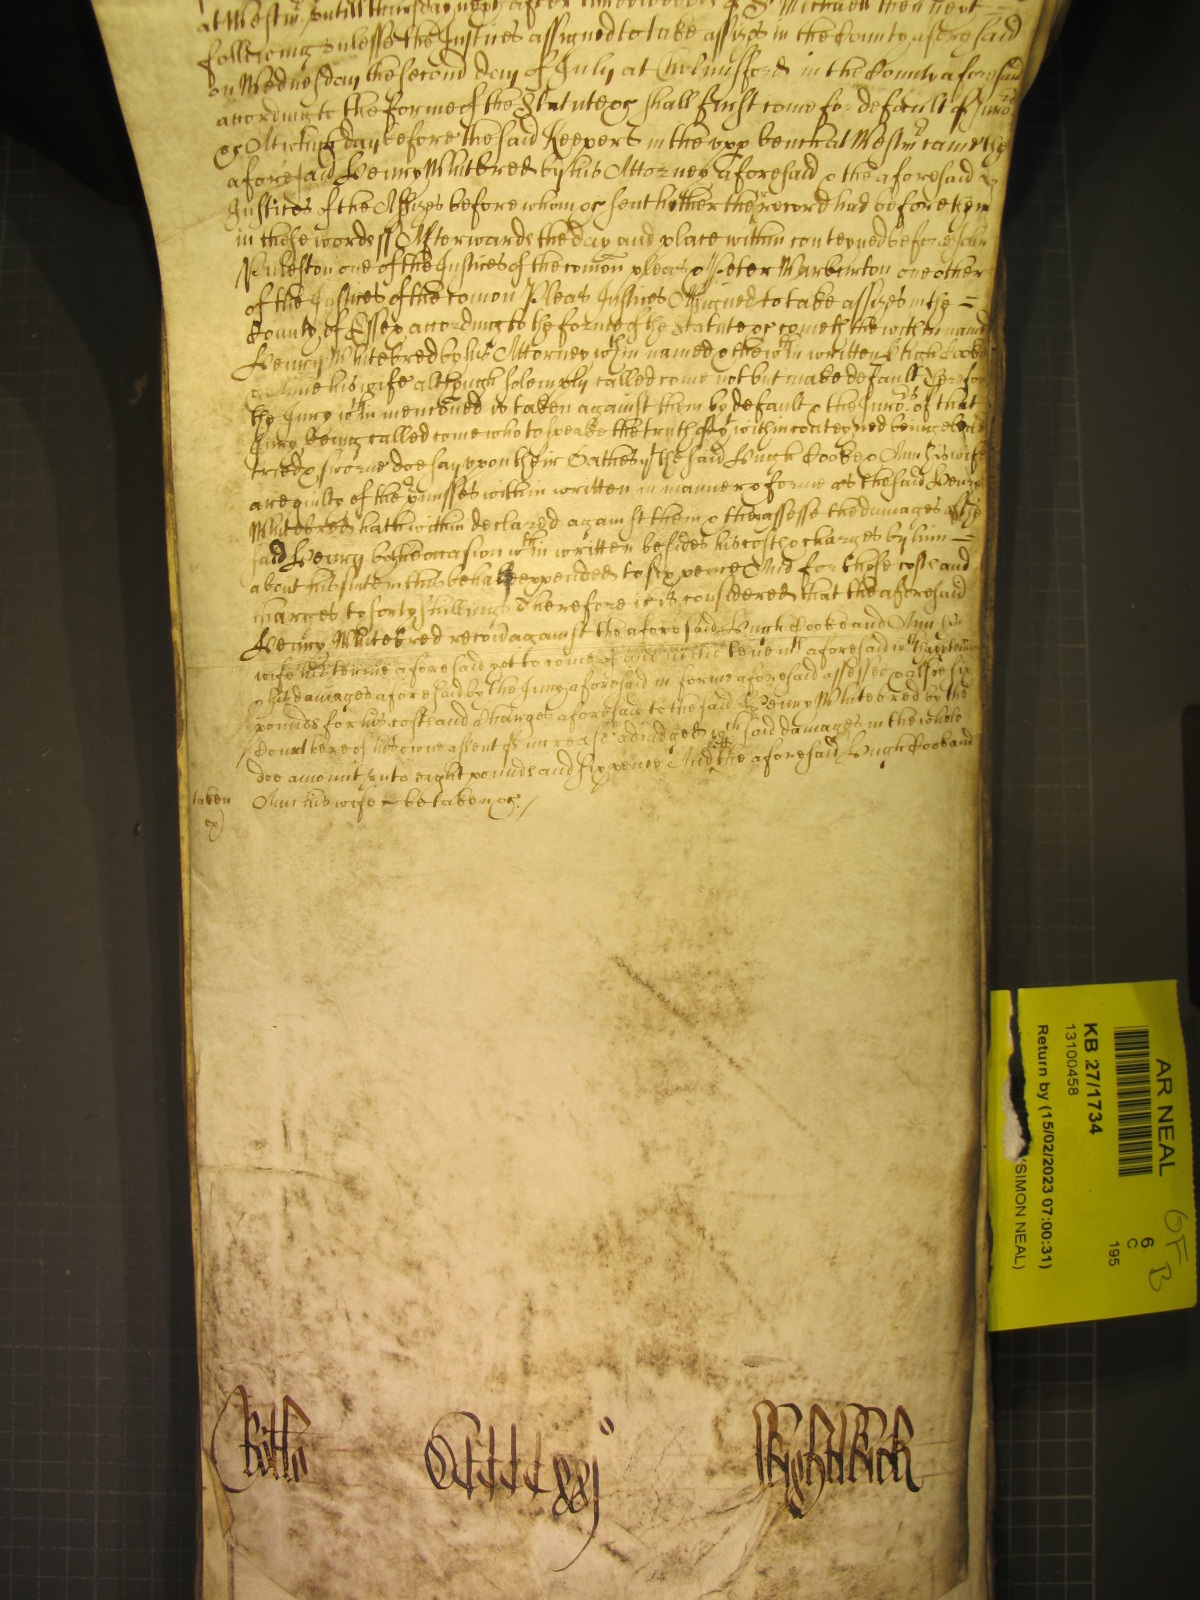 at Westm. untill thursday next after three weekes of St Michaell then next
following unlesse the Justices assigned to take assizes in the County aforesaid
on Wednesday the second day of July at Chelmisford in the County aforesaid
according to the forme of the Statute &c shall first come for default of Juro.s
&c At which day before the said Keepers in the upp bench at Westm came the
aforesaid Henry Whitebred by his Attorney aforesaid & the aforesaid
Justices of the Assizes before whom &c sent hither their record had before them
in these words ss Afterwards the day and place within conteyned before John
Puleston one of the Justices of the comon pleas & Peter Warburton one other
of the Justices of the comon Pleas Justices Assigned to take assizes in the =
County of Essex according to the forme of the Statute &c cometh the within named
Henry Whitebred by his Attorney wthin named & the wthin written Hugh Cooke
& Anne his wife although solemnly called come not but make default Therefore
the Jury wthin menconed is taken against them by default & the Juro.s of that
Jury being called come who to speake the truth of the within conteyned being elected
tried & sworne doe say upon their Oathes yt the said Hugh Cooke & Ann his wife
are guilty of the pmisses within written in manner & forme as the said Henry
Whitebred hath within declared against them & they assesse the damages of the
said Henry by the occasion wthin written besides his costs & charges by him =
about his suite in this behalfe expended to six pence And for those costs and
charges to forty shillings Therefore it is considered that the aforesaid
Henry Whitebred recov against the aforesaid Hugh Cooke and Ann his
wife his terme aforesaid yet to come of and in the tenemts aforesaid wth thappurtenncs
& his damages aforesaid by the Jury aforesaid in forme aforesaid assessed & also six
pounds for his costs and charges aforesaid to the said Henry Whitebred by the
Court here of his owne assent of increase adiudged wch said damages in the whole
doe amount unto eight pounds and six pence And let the aforesaid Hugh Cooke and
taken Ann his wife be taken &c.
ex)
AR NEAL
KB 27/1734
13100458
Return by (15/02/2023 07:00:31)
(SIMON NEAL)
6
C
195
GF
B